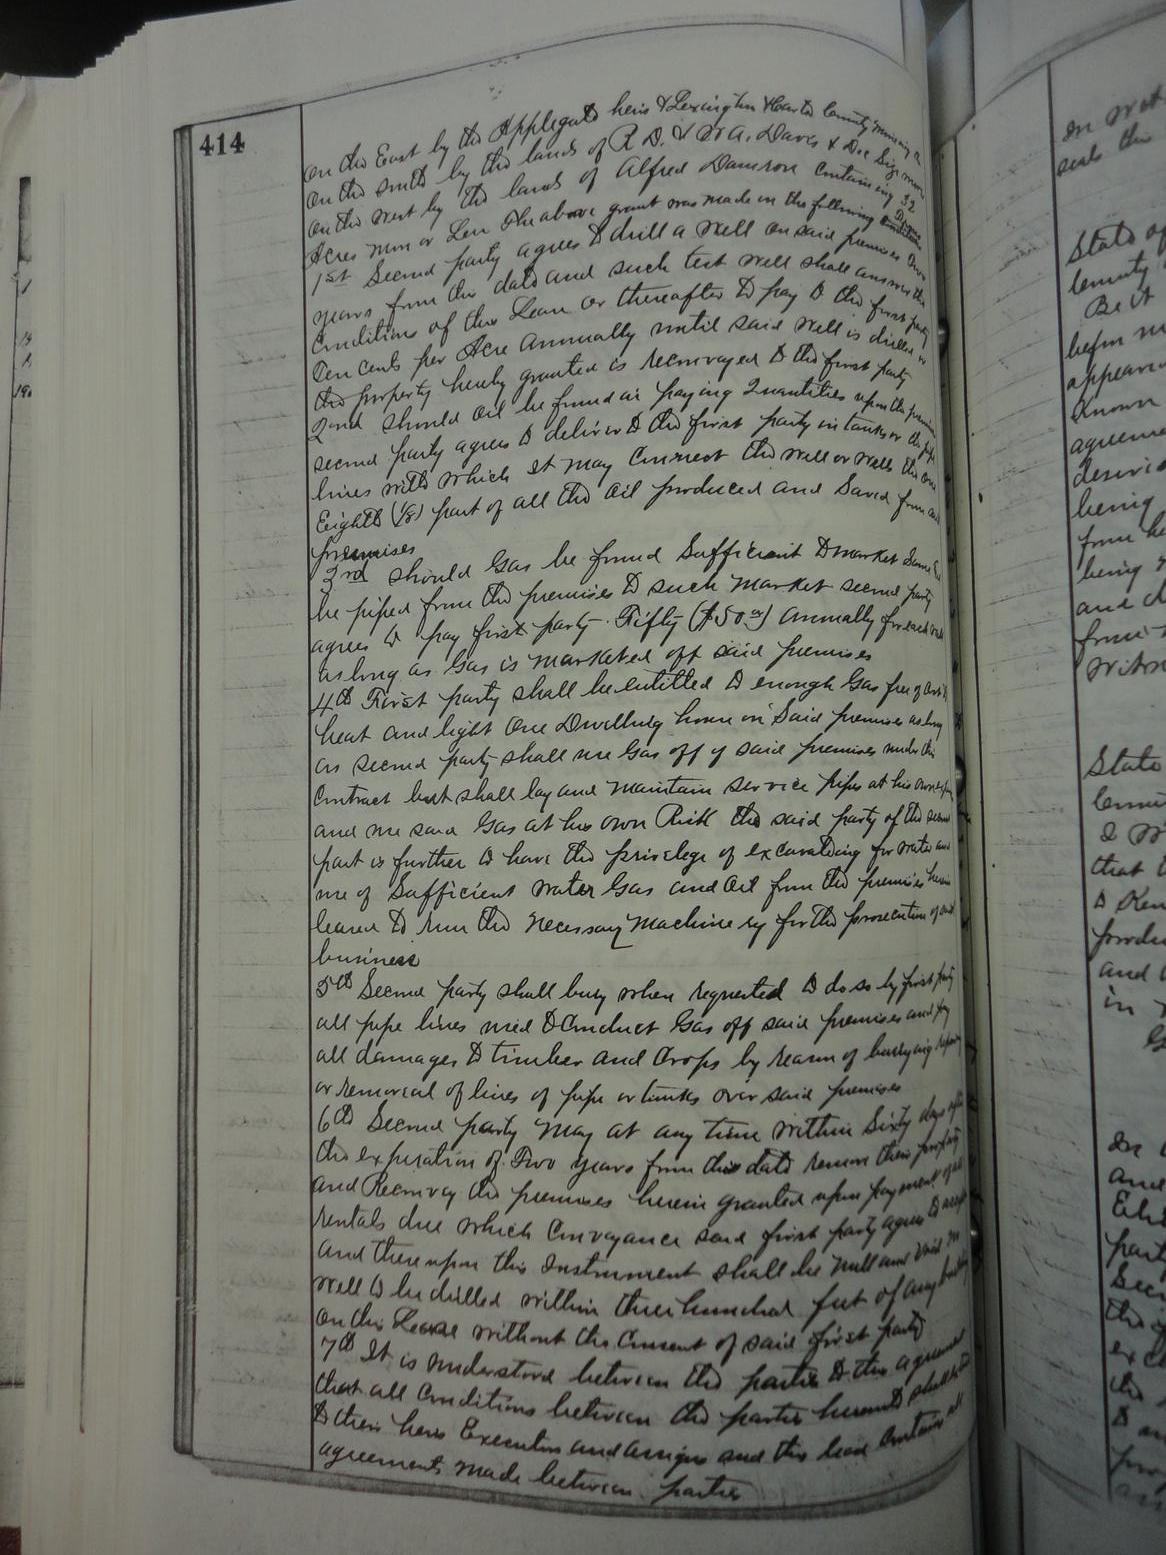 414
on the East by the Applegate heirs & Lexington & Carter County Mining Co
on the south by the lands of R. D. & W A. Davis & Doc Sizemore
on the west by the lands of Alfred Damron Containing 32
Acres more or Less The above grant was made on the following Conditions
1st Second party agrees to drill a well on said premises two
years from the date and such test well shall answer the
Conditions of this Lease or thereafter to pay to the first party
Ten Cents per Acre Annually until said well is drilled or
the property hereby granted is reconvayed to the first party
2nd should oil be found in paying Quantities upon the premises
second party agrees to deliver to the first party in tanks or the pipe
lines with which it may Connect the well or wells the one
Eighth (1/8) part of all the oil produced and Saved from said
premises
3rd should Gas be found Sufficient to market Same
be piped from the premises to such market second party
agrees to pay first party Fifty ($50.00) annually for each well
as long as Gas is marketed off said premises
4th First party shall be entitled to enough Gas free of Cost to
heat and light One Dwelling house on Said premises as long
as second party shall use Gas off of said premises under this
Contract but shall lay and maintain service pipes at his own
and use said Gas at his own Risk the said party of the second
part is further to have the privelege of excavating for water and
use of Sufficient water Gas and oil from the premises herein
leased to run the necessary Machinery for the prosecution of said
business
5th Second party shall bury when requested to do so by first party
all pipe lines used to Conduct Gas off said premises and pay
all damages to timber and Crops by reason of burying
or removal of lines of pipe or tanks over said premises
6th Second party may at any time within Sixty days after
the expiration of Two years from this date remove their property
and Reconvay the premises herein granted upon payment of all
rentals due which Convayance said first party agrees to accept
and thereupon this Instrument shall be null and void no
well to be drilled within three hundred feet of any building
on this Lease without the Consent of said first party
7th It is understood between the parties to this agreement
that all Conditions between the parties hereunto shall
to their heirs Executors and assigns and this lease Contains all
agreements made between parties
State of
County
Be it
before me
appeared
Known
agreement
being
from he
being
and
from
State
that
to Ken
produ
and
in
and
part
the